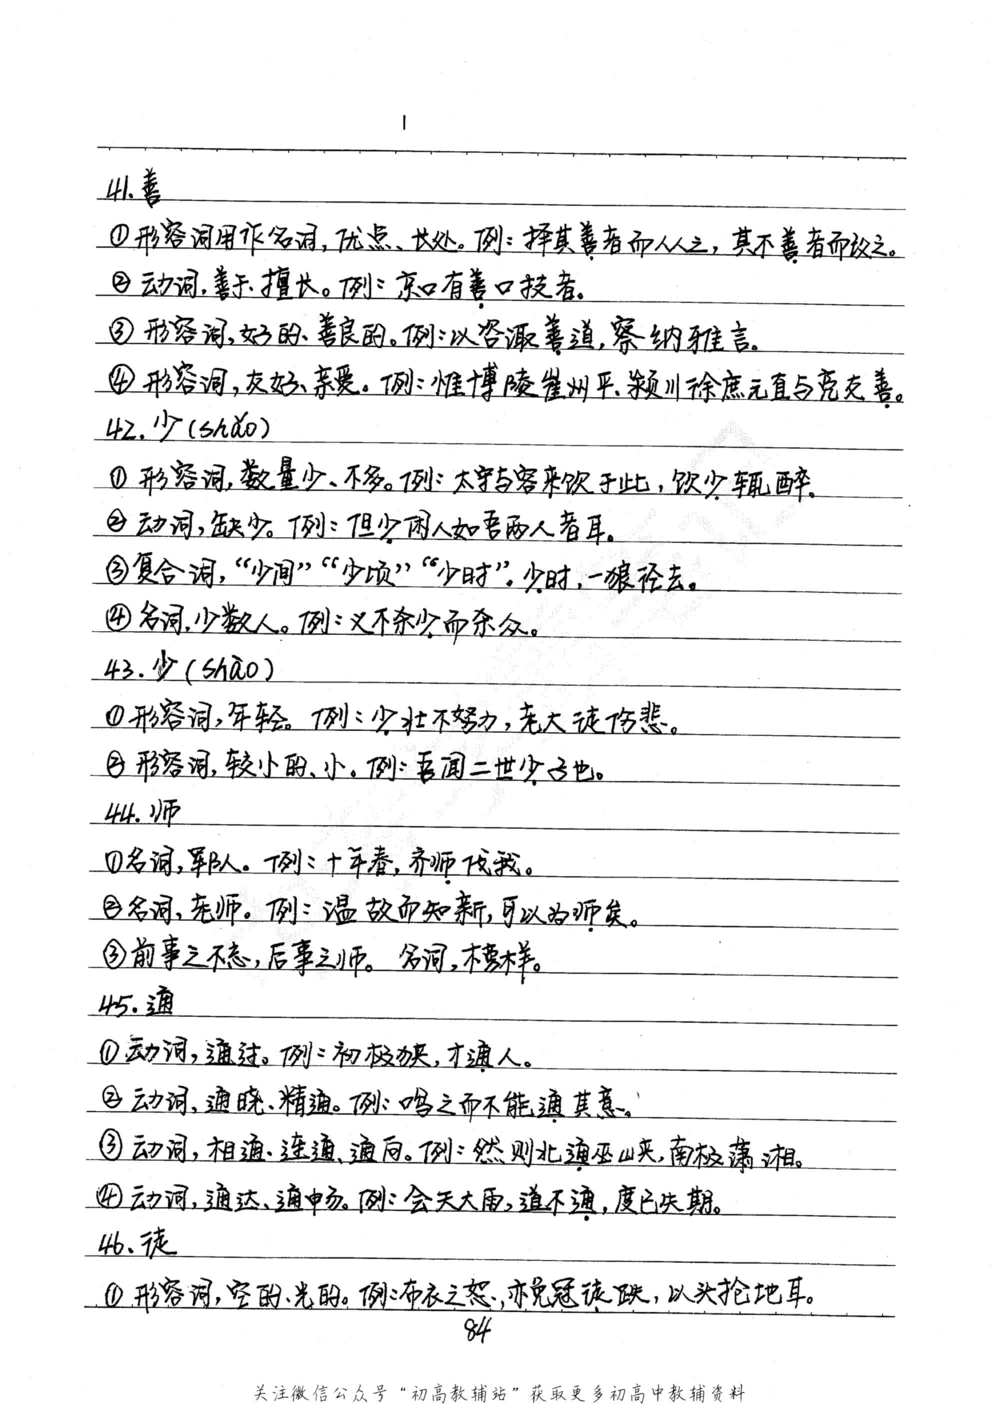 41.善
①形容词用作名词，优点、长处。例：择其善者而从之，其不善者而改之。
②动词，善于、擅长。例：京口有善口技者。
③形容词，好的、善良的。例：以咨诹善道，察纳雅言。
④形容词，友好、亲爱。例：惟博陵崔州平、颍川徐庶元直与亮友善。
42.少(shǎo)
①形容词，数量少、不多。例：太守与客来饮于此，饮少辄醉。
②动词，缺少。例：但少闲人如吾两人者耳。
③复合词，“少间”“少顷”“少时”。少时，一狼径去。
④名词，少数人。例：义不杀少而杀众。
43.少(shào)
①形容词，年轻。例：少壮不努力，老大徒伤悲。
②形容词，较小的、小。例：吾闻二世少子也。
44.师
①名词，军队。例：十年春，齐师伐我。
②名词，老师。例：温故而知新，可以为师矣。
③前事之不忘，后事之师。名词，榜样。
45.通
①动词，通过。例：初极狭，才通人。
②动词，通晓、精通。例：鸣之而不能通其意。
③动词，相通、连通、通向。例：然则北通巫峡，南极潇湘。
④动词，通达、通畅。例：会天大雨，道不通，度已失期。
46.徒
①形容词，空的、光的。例：布衣之怒，亦免冠徒跣，以头抢地耳。
84
关注微信公众号“初高教辅站”获取更多初高中教辅资料